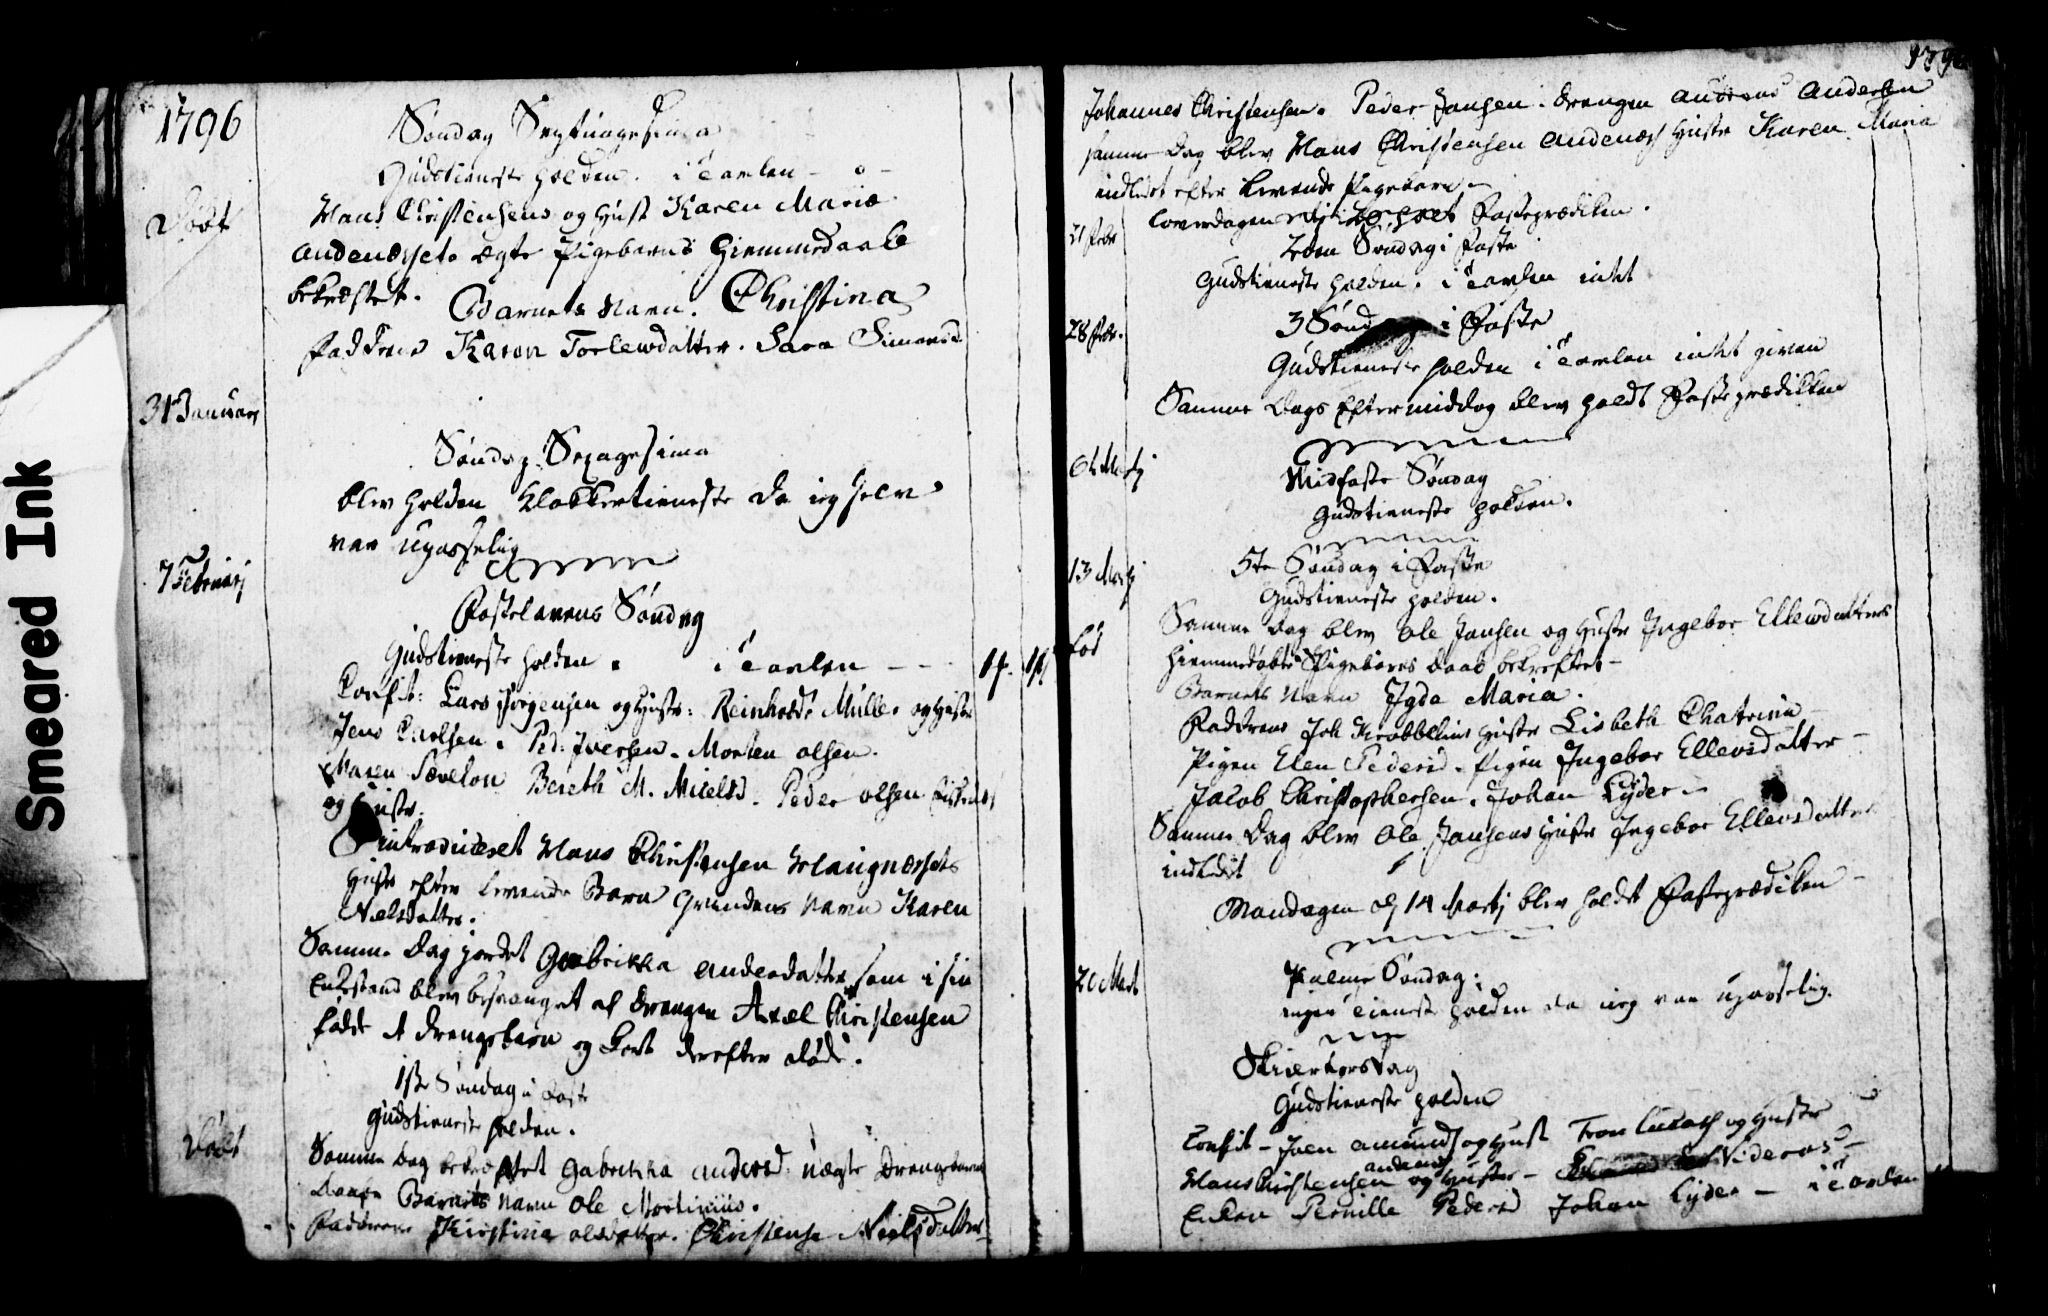 Smeared Ink
1796
Søndag Septuagesima
Gudstieneste holden. i Tavlen - o -
Døbt
Hans Christensens og Hust Karen Mariæ
Andenæsset. ægte Pigebarns Hiemmedaab
bekræftet.
Barnets Navn. Christina
Faddrene Karen Torlewdatter. Sara Simonsd.
31 Januarj
Søndag Sexagesima
blev holden Klokkertieneste da ieg selv
var upasselig
7 Februarj
Fastelavens Søndag
Gudstieneste holden. i Tavlen - - -
Confit: Lars Jørgensen og Hustr: Reinholdt Müller og Hustr
Jens Carlsen. Ped: Iversen. Morten Olsen.
Maren Bereth M. Nielsd. Peder Olsen
og Hustr.
introduceret Hans Christensen
Hustr efter levende Barn Hendes Navn Karen
Nielsdatter.
Samme Dag Andersdatter som i sin
Enkestand blev besvangret af Drengen Axel Christensen
fødde et Drengebarn og kort derefter døde.
1ste Søndag i Faste
Gudstieneste holden.
Døbt
Samme Dag bekræftet Gabrikka Andersd. uægte Drengebarns
Daab Barnets Navn Ole Mortinius.
Faddrene Kirstina Olsdatter. Christense Nielsdatter
Johannes Christensen. Peder Jansen. Drengen Andreas Andersen
samme Dag blev Hans Christensen Andenæs Hustr Karen Maria
indledet efter levende Pigebarn
Løverdagen holdt Fasteprædiken.
21 Febr
2den Søndag i Faste
Gudstieneste holden. i Tavlen intet
28 Febr.
3 Søndag i Faste
Gudstieneste holden i Tavlen intet given
Samme Dags Eftermiddag blev holdt Fasteprædiken
6te Martj
Midfaste Søndag
Gudstieneste holden.
13 Martj
5te Søndag i Faste
Gudstieneste holden.
Samme Dag blev Ole Jansen og Hustr Ingebor Ellewdatters
hiemmedøbte Pigebarns Daab bekreftet -
Barnets Navn Igda Maria.
Faddrene Joh Krobbelins Hustr Lisbeth Chatrina
Pigen Elen Pedersd. Pigen Ingebor Ellevsdatter -
Jacob Christophersen. Johan Lyder -
Samme Dag blev Ole Jansens Hustr Ingebor Ellevsdatter
indledet
Mandagen d 14 Martj blev holdt Fasteprædiken -
20 Mart
Palme Søndag.
ingen Tieneste holden da ieg var upasselig.
Skiertorsdag
Gudstieneste holden
Confit - Joen Amunds og Hust Tron og Hustr
Hans Christensen Andenæs og Hustr - Nideros -
Enken Pernille Pedersd Johan Lyder - i Tavlen